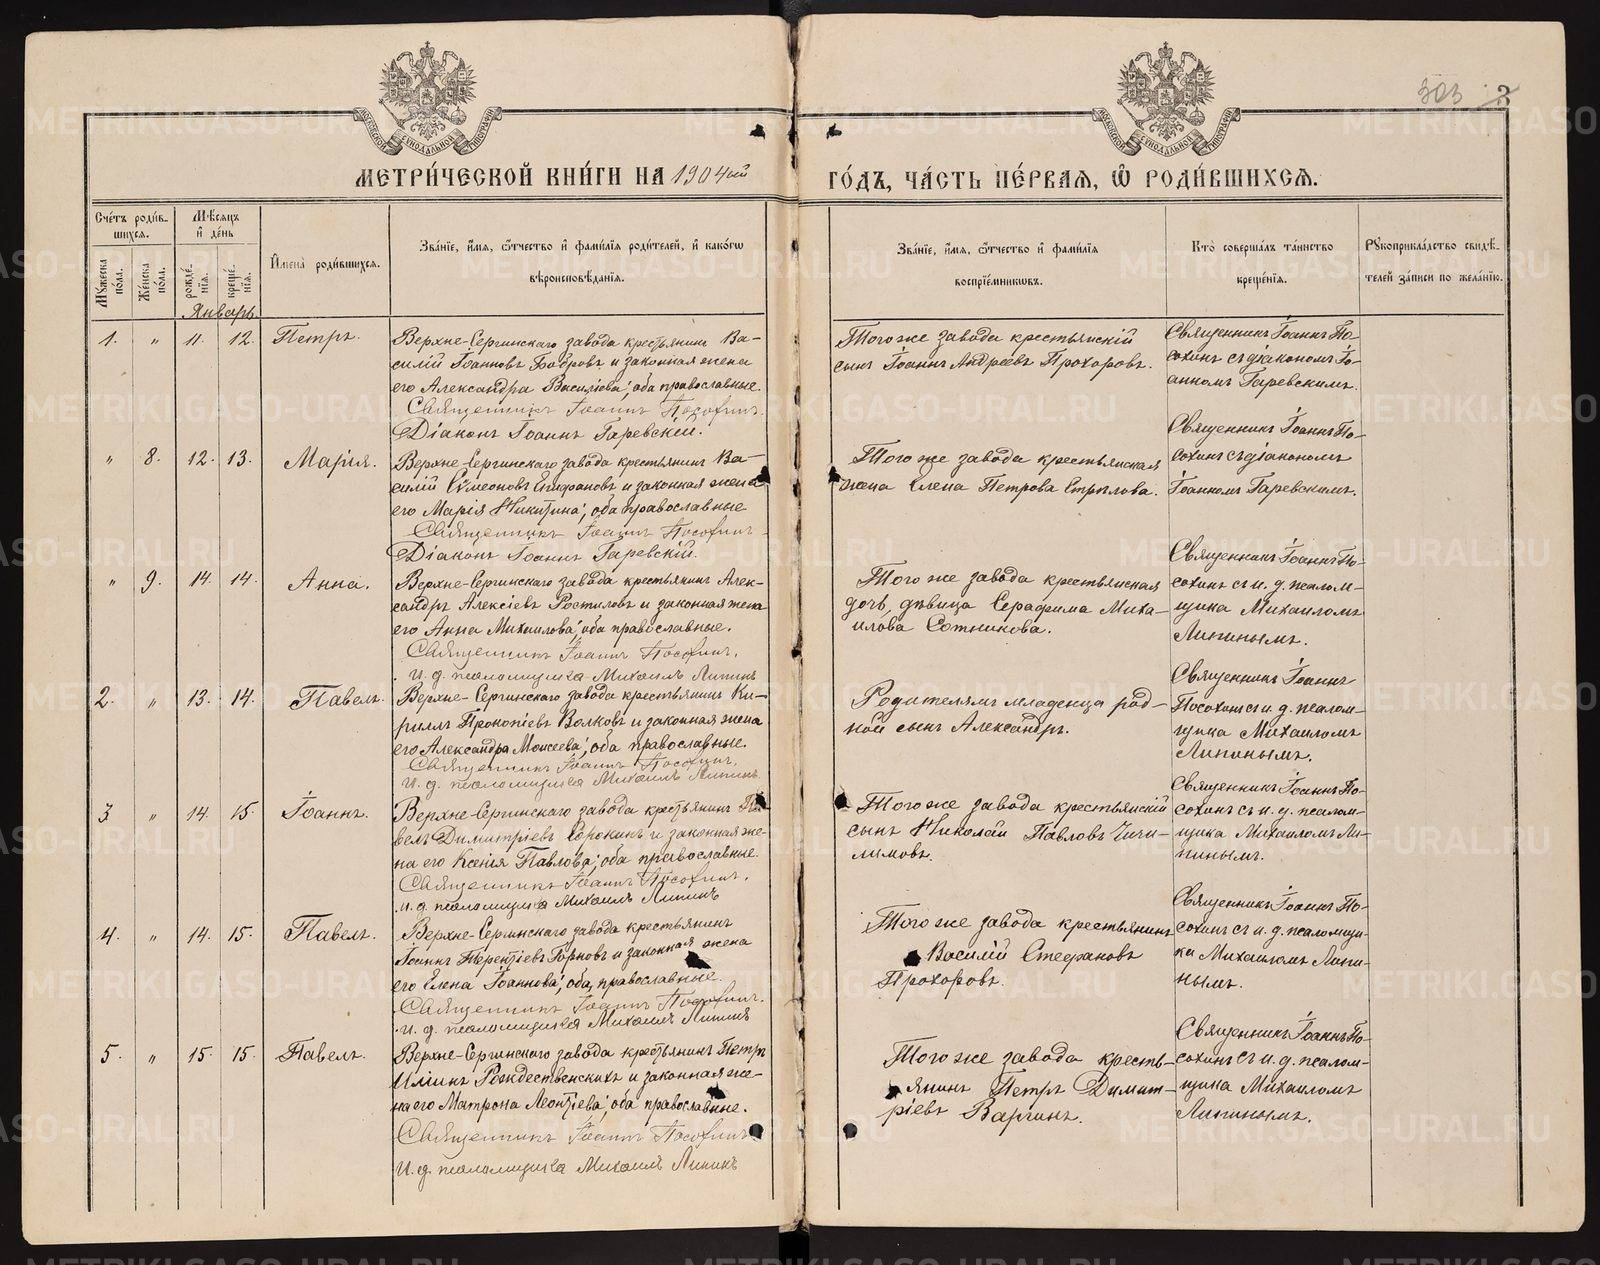 303 3
МОСКОВСКОЙ СѴНОДАЛЬНОЙ ТИПОГРАФІИ
МОСКОВСКОЙ СѴНОДАЛЬНОЙ ТИПОГРАФІИ
МЕТРИ́ЧЕСКОЙ КНИ́ГИ НА 1904ый
ГО́ДЪ, ЧА́СТЬ ПЕ́РВАѦ, Ѡ҆ РОДИ́ВШИХСѦ.
Сче́тъ роди́в-
шихсѧ.
Мꙋ́жеска по́ла.
Же́нска по́ла.
Мѣ́сѧцъ
и҆ де́нь
рожде́-
нїѧ.
креще́-
нїѧ.
Январь
И҆мена̀ роди́вшихсѧ.
Зва́нїе, и҆́мѧ, ѻ҆́тчество и҆ фами́лїѧ роди́телей, и҆ како́гѡ
вѣроисповѣ́данїѧ.
Зва́нїе, и҆́мѧ, ѻ҆́тчество и҆ фами́лїѧ
воспрїе́мникѡвъ.
Кто̀ соверша́лъ та́инство
креще́нїѧ.
Рꙋкоприкла́дство свидѣ́-
телей за́писи по жела́нїю.
1. " 11. 12. Петръ.
Верхне-Сергинскаго завода крестьянинъ Ва-
силій Іоанновъ Бобровъ и законная жена
его Александра Васильева; оба православные.
Священникъ Іоаннъ Посохинъ.
Діаконъ Іоаннъ Гаревскій.
Того же завода крестьянскій
сынъ Іоаннъ Андреевъ Прохоровъ.
Священникъ Іоаннъ По-
сохинъ съ діакономъ Іо-
анномъ Гаревскимъ.
" 8. 12. 13. Марія.
Верхне-Сергинскаго завода крестьянинъ Ва-
силій Сѵмеоновъ Епифановъ и законная жена
его Марія Никитина; оба православные
Священникъ Іоаннъ Посохинъ
Діаконъ Іоаннъ Гаревскій.
Того же завода крестьянская
жена Елена Петрова Стрѣлова.
Священникъ Іоаннъ По-
сохинъ съ діакономъ
Іоанномъ Гаревскимъ.
" 9. 14. 14. Анна.
Верхне-Сергинскаго завода крестьянинъ Алек-
сандръ Алексіевъ Ростиловъ и законная жена
его Анна Михаилова; оба православные.
Священникъ Іоаннъ Посохинъ.
и. д. псаломщика Михаилъ Липинъ
Того же завода крестьянская
дочь, дѣвица Серафима Миха-
илова Сотникова.
Священникъ Іоаннъ По-
сохинъ съ и. д. псалом-
щика Михаиломъ
Липинымъ.
2. " 13. 14. Павелъ.
Верхне-Сергинскаго завода крестьянинъ Ки-
риллъ Прокопіевъ Волковъ и законная жена
его Александра Моисеева; оба православные.
Священникъ Іоаннъ Посохинъ.
и. д. псаломщика Михаилъ Липинъ.
Родителямъ младенца род-
ной сынъ Александръ.
Священникъ Іоаннъ
Посохинъ съ и. д. псалом-
щика Михаиломъ
Липинымъ.
3 " 14. 15. Іоаннъ.
Верхне-Сергинскаго завода крестьянинъ Па-
велъ Димитріевъ Сорокинъ и законная же-
на его Ксенія Павлова; оба православные.
Священникъ Іоаннъ Посохинъ.
и. д. псаломщика Михаилъ Липинъ
Того же завода крестьянскій
сынъ Николай Павловъ Чичи-
лимовъ.
Священникъ Іоаннъ По-
сохинъ съ и. д. псалом-
щика Михаиломъ Ли-
пинымъ.
4. " 14. 15. Павелъ.
Верхне-Сергинскаго завода крестьянинъ
Іоаннъ Терентіевъ и законная жена
его Елена Іоаннова; оба православные.
Священникъ Іоаннъ Посохинъ.
и. д. псаломщика Михаилъ Липинъ
Того же завода крестьянинъ
Василій Стефановъ
Прохоровъ.
Священникъ Іоаннъ По-
сохинъ съ и. д. псаломщи-
ка Михаиломъ Липи-
нымъ.
5. " 15. 15. Павелъ.
Верхне-Сергинскаго завода крестьянинъ Петръ
Иліинъ Рождественскихъ и законная же-
на его Матрона Леонтіева; оба православные.
Священникъ Іоаннъ Посохинъ
и. д. псаломщика Михаилъ Липинъ
Того же завода кресть-
янинъ Петръ Димит-
ріевъ Варгинъ.
Священникъ Іоаннъ По-
сохинъ съ и. д. псалом-
щика Михаиломъ
Липинымъ.
METRIKI.GASO-URAL.RU